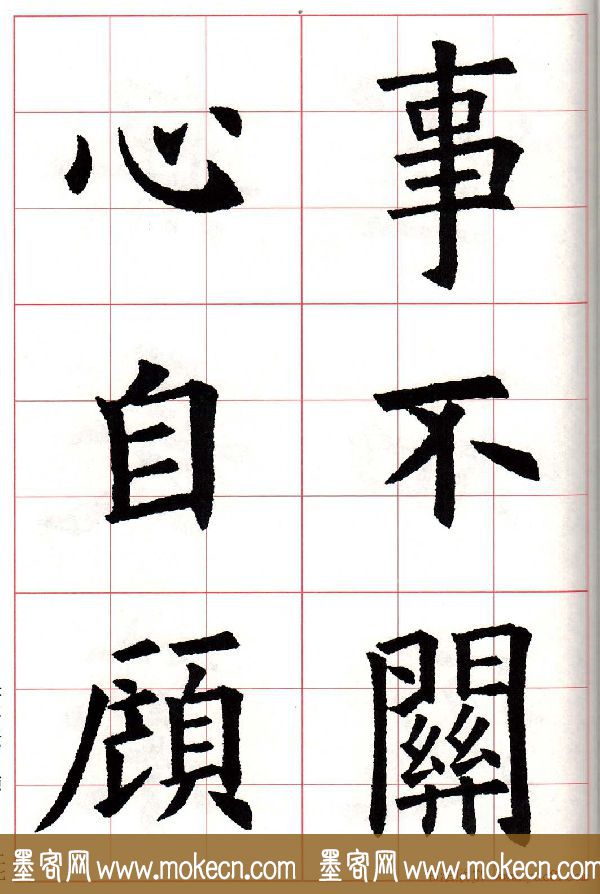 事不關
心自顧
墨客网 www.mokecn.com 墨客网 www.mokecn.com